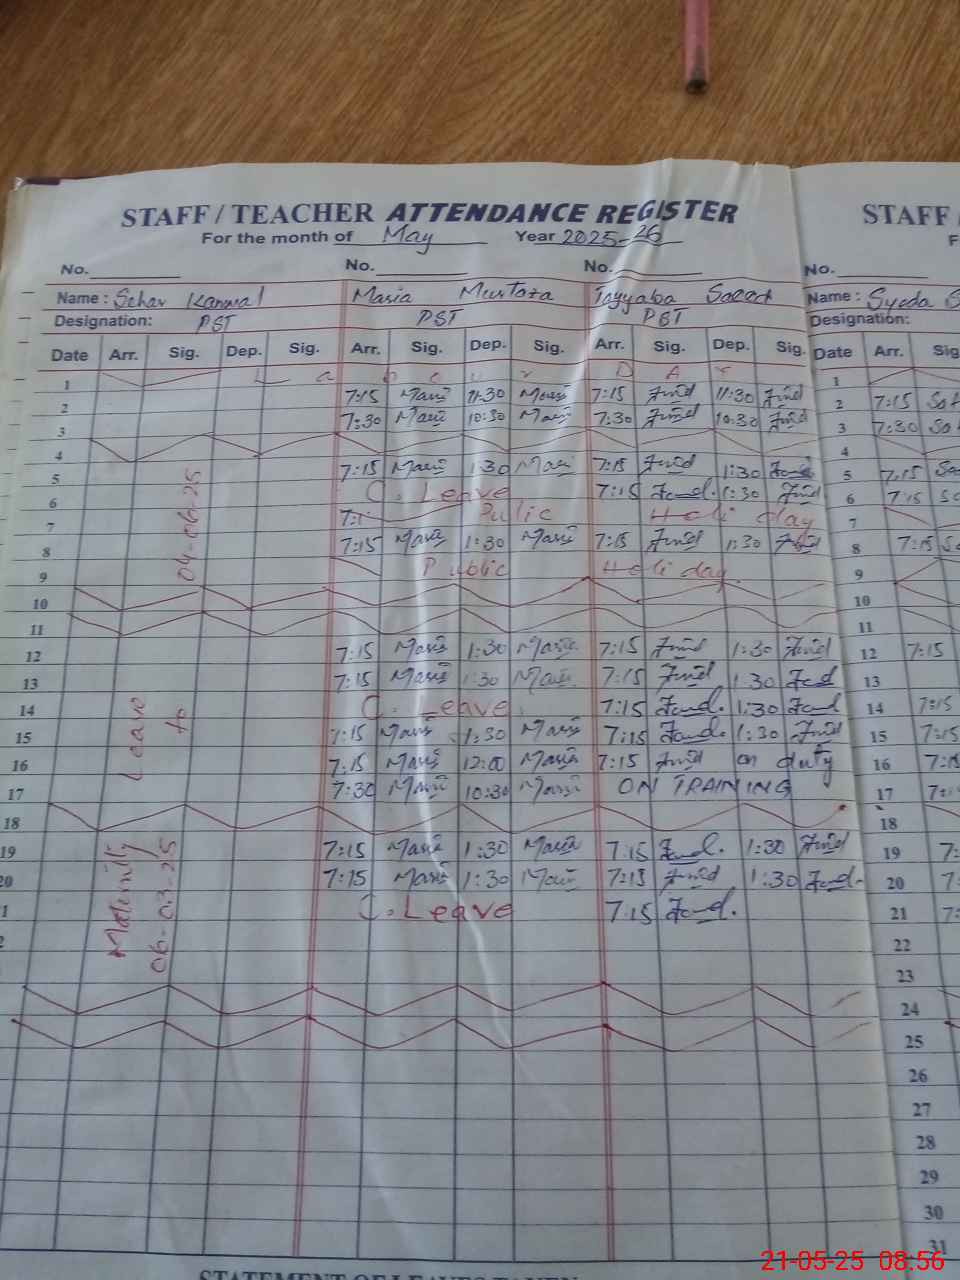 STAFF / TEACHER ATTENDANCE REGISTER STAFF /
For the month of May Year 2025-26 F
No. No. No. No.
Name : Sehar Kanwal Maria Murtaza Tayyaba Saeed Name : Syeda S
Designation: PST PST PST Designation:
Date Arr. Sig. Dep. Sig. Arr. Sig. Dep. Sig. Arr. Sig. Dep. Sig. Date Arr. Sig
1 L a b o u r D A Y 1
2 7:15 Maria 11:30 Maria 7:15 11:30 2 7:15
3 7:30 Maria 10:30 Maria 7:30 10:30 3 7:30
4 4
5 7:15 Maria 1:30 Maria 7:15 1:30 5 7:15
6 C. Leave 7:15 1:30 6 7:15
7 7:1 Public Holi day 7
8 7:15 Maria 1:30 Maria 7:15 1:30 8 7:15
9 Public Holi day. 9
10 10
11 11
12 7:15 Maria 1:30 Maria 7:15 1:30 12 7:15
13 7:15 Maria 1:30 Maria 7:15 1:30 13
14 C. Leave 7:15 1:30 14 7:15
15 7:15 Maria 1:30 Maria 7:15 1:30 15 7:15
16 7:15 Maria 12:00 Maria 7:15 on duty 16 7:15
17 7:30 Maria 10:30 Maria ON TRAINING 17 7:1
18 18
19 7:15 Maria 1:30 Maria 7:15 1:30 19 7:
20 7:15 Maria 1:30 Maria 7:15 1:30 20 7
1 C. Leave 7:15 21 7:
2 22
23
24
25
26
27
28
29
30
31
Maternity Leave
06-03-25 to 04-06-25
STATEMENT OF LEAVES TAKEN
21-05-25 08:56